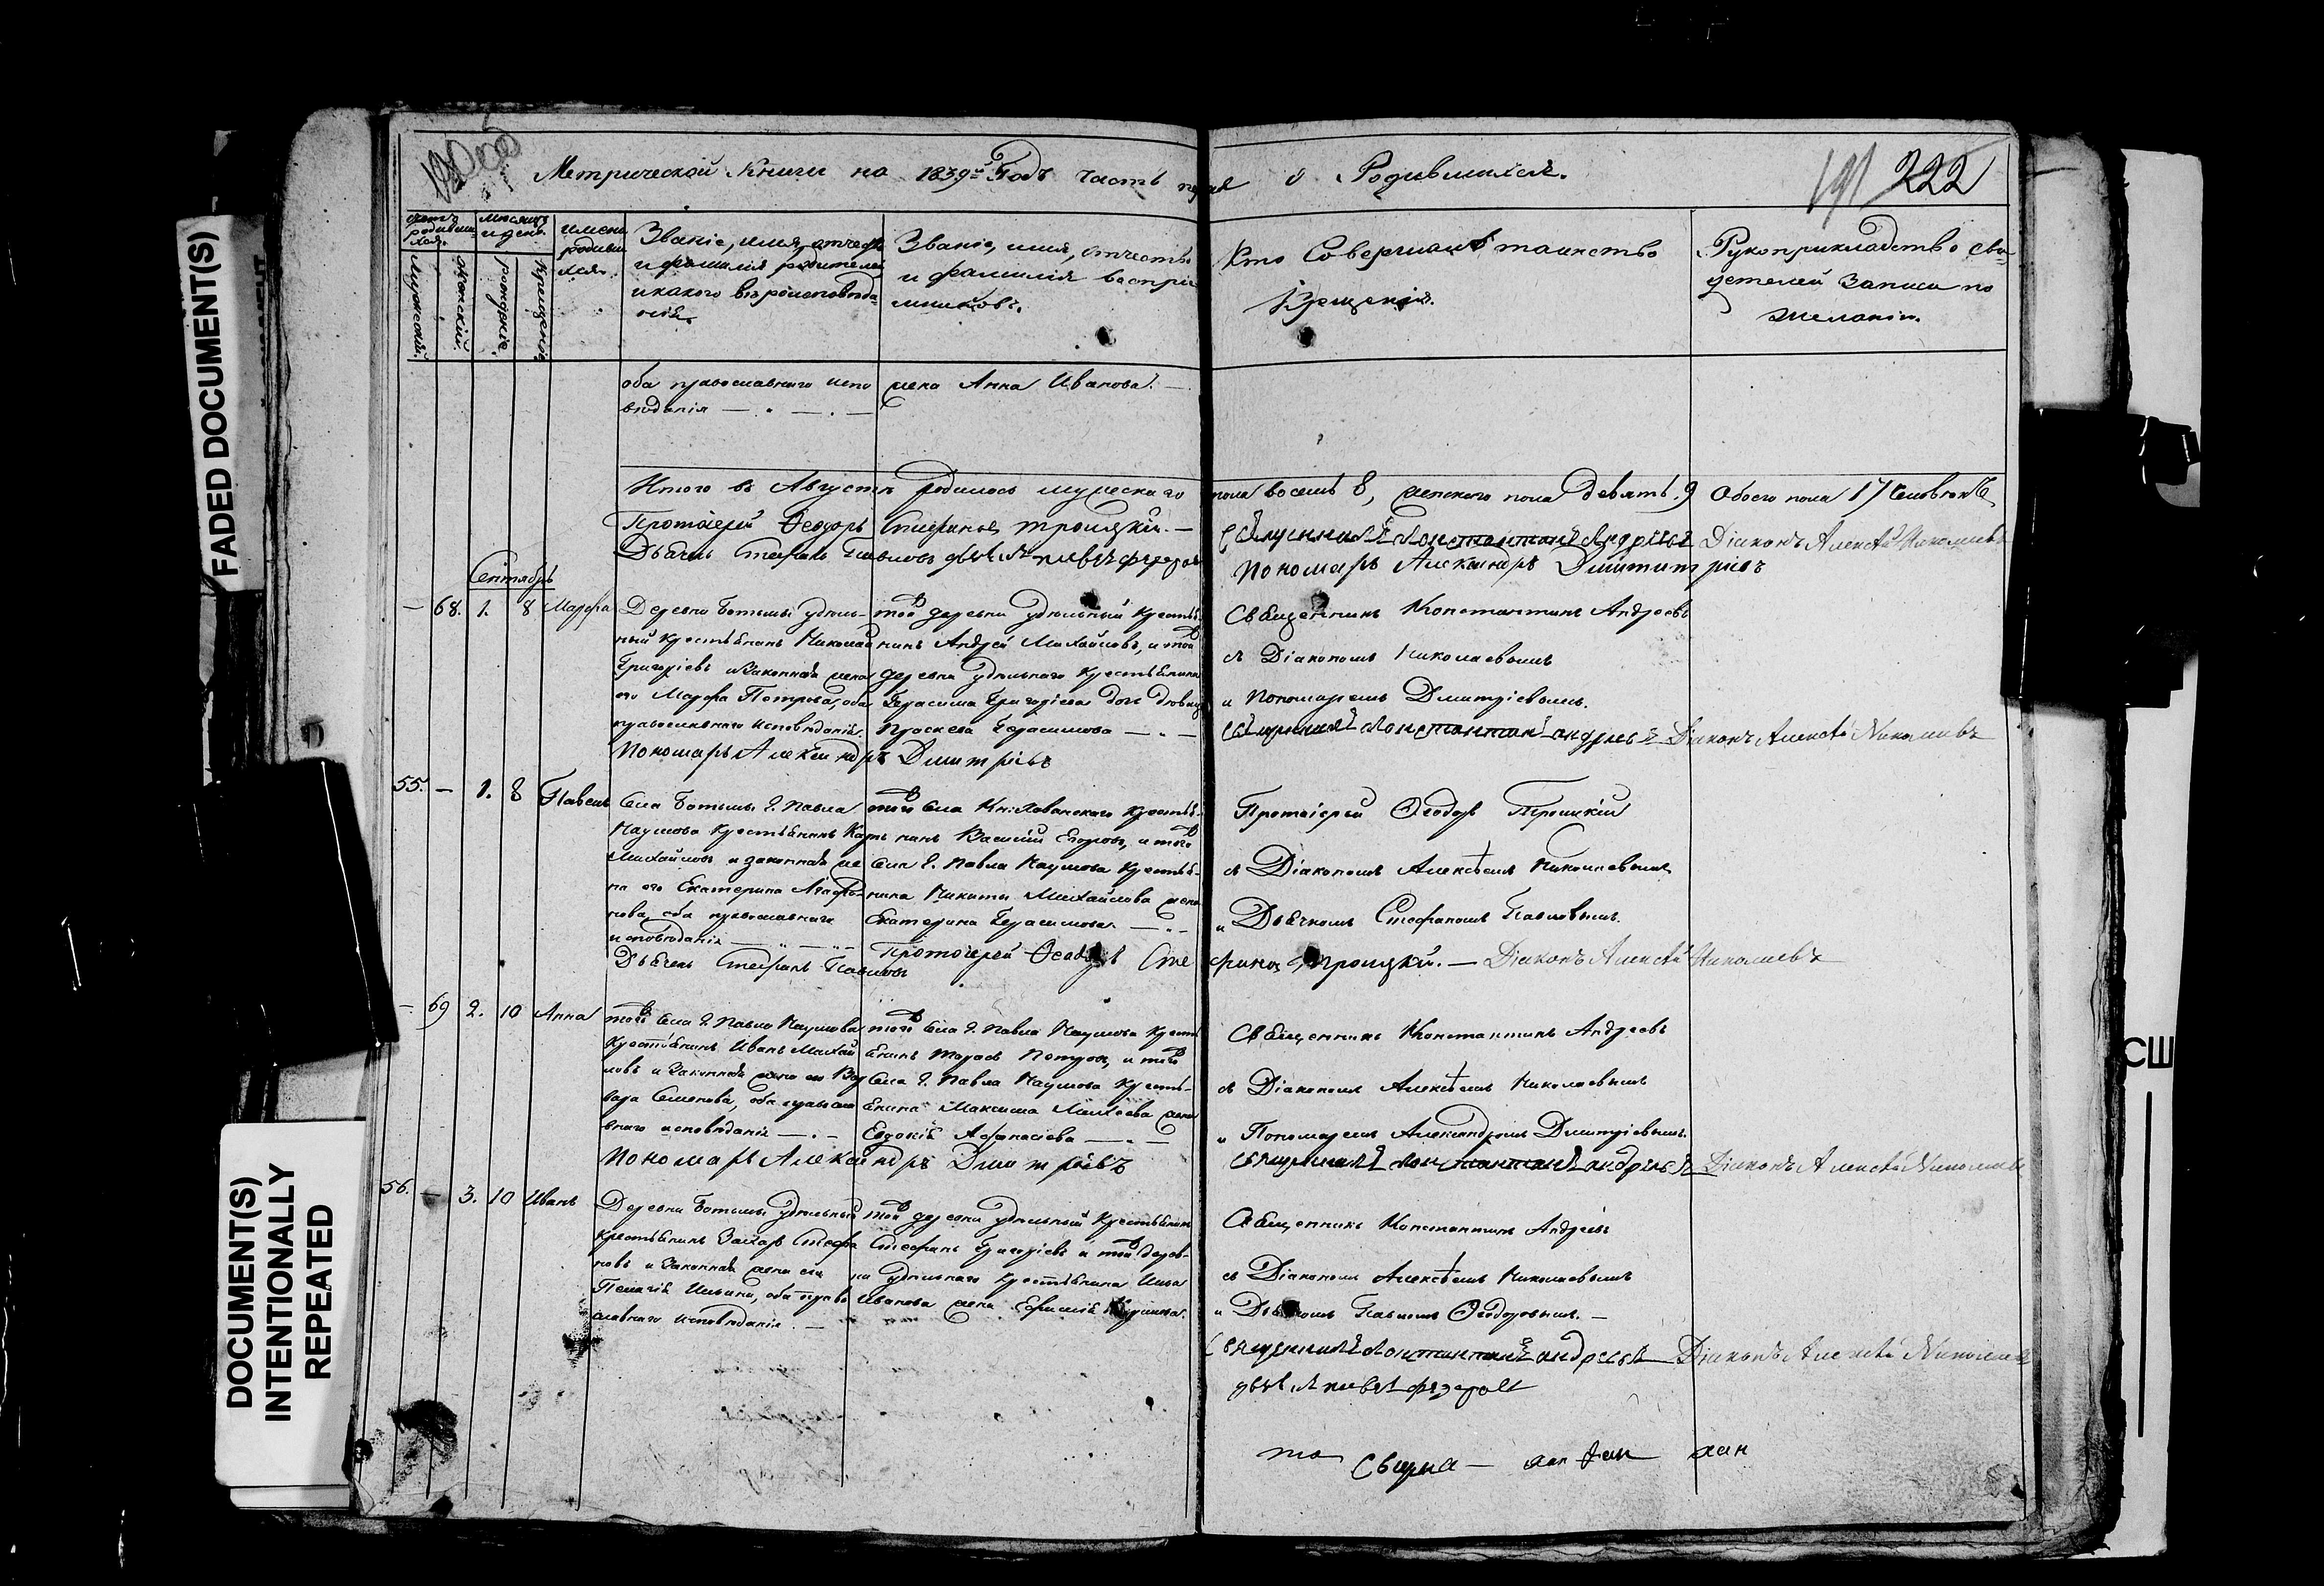 Метрической Книги на 1839й Годъ часть пер ая о Родившихся.
191 222
Мужескій.
Женскій.
рожденіе.
Крещеніе.
имена
родивш
ихся.
Званіе, имя, отчество
и фамилія родителей
и какого вѣроисповѣда-
нія.
Званіе, имя, отчество
и фамилія воспріе
мниковъ.
Кто Совершалъ таинство
Крещенія.
Рукоприкладство сви-
детелей Записи по
желанію.
оба православнаго испо
вѣданія
жена Анна Иванова.
Итого въ Августѣ родилось мужескаго пола восемь 8, женского пола девять 9 Обоего пола 17 человѣкъ
Протоіерей Ѳеодоръ Стефановъ Троицкій.
Священникъ Константинъ Андреевъ Діаконъ Алексѣй Николаевъ
Дьячекъ Стефанъ Павловъ
Пономарь Александръ Дмитріевъ
Сентябрь
— 68. 1. 8 Марфа
Деревни Ботьмы удѣль-
ный крестьянинъ Николай
Григоріевъ и Законная жена
его Марфа Петрова, оба
православнаго исповѣданія.
той деревни удѣльный крестья-
нинъ Андрей Михайловъ, и той
деревни удѣльнаго Крестьянина
Герасима Григоріева дочь дѣвица
Праскева Герасимова
Священникъ Константинъ Андреевъ
съ Діакономъ Николаевымъ
и Пономаремъ Дмитріевымъ.
Священникъ Константинъ андреевъ Діаконъ Алексѣй Николаевъ
Пономарь Александръ Дмитріевъ
55. — 1. 8 Павелъ
Села Ботьмы Г. Павла
Наумова Крестьянинъ Карпъ
Михайловъ и законная же
на его Екатерина Агафо-
нова, оба православнаго
исповѣданія
того Села Кн: Хованского Крестья-
нинъ Василій Егоровъ, и того
Села Г. Павла Наумова Крестья-
нина Никиты Михайлова жена
Екатерина Герасимова
Протоіерей Ѳеодоръ Троицкій
съ Діакономъ Алексѣемъ Николаевымъ
и Дьячкомъ Стефаномъ Павловымъ.
Протоіерей Ѳеодоръ Стефановъ Троицкій. — Діаконъ Алексѣй Николаевъ
Дьячекъ Стефанъ Павловъ
— 69 2. 10 Анна
того Села Г. Павла Наумова
Крестьянинъ Иванъ Михай
ловъ и Законная жена его Вар
вара Семенова, оба правосла
внаго исповѣданія
того Села Г. Павла Наумова Кресть
янинъ Тарасъ Петровъ, и того
Села Г. Павла Наумова Кресть-
янина Максима Михеева жена
Евдокія Афанасіева
Священникъ Константинъ Андреевъ
съ Діакономъ Алексѣемъ Николаевымъ
и Пономаремъ Александромъ Дмитріевымъ.
Священникъ Константинъ андреевъ Діаконъ Алексѣй Николаевъ
Пономарь Александръ Дмитріевъ
56. — 3. 10 Иванъ
Деревни Ботьмы удѣльный
крестьянинъ Захаръ Стефа
новъ и Законная жена его
Пелагія Ильина, оба право
славнаго исповѣданія.
той деревни удѣльный Крестьянинъ
Стефанъ Григоріевъ и той дерев-
ни удѣльнаго Крестьянина Ильи
Иванова жена Ефимія
Священникъ Константинъ Андреевъ
съ Діакономъ Алексѣемъ Николаевымъ
и Дьячкомъ Павломъ Ѳеодоровымъ.
Священникъ Константинъ андреевъ Діаконъ Алексѣй Николаевъ
FADED DOCUMENT(S)
DOCUMENT(S)
INTENTIONALLY
REPEATED
США